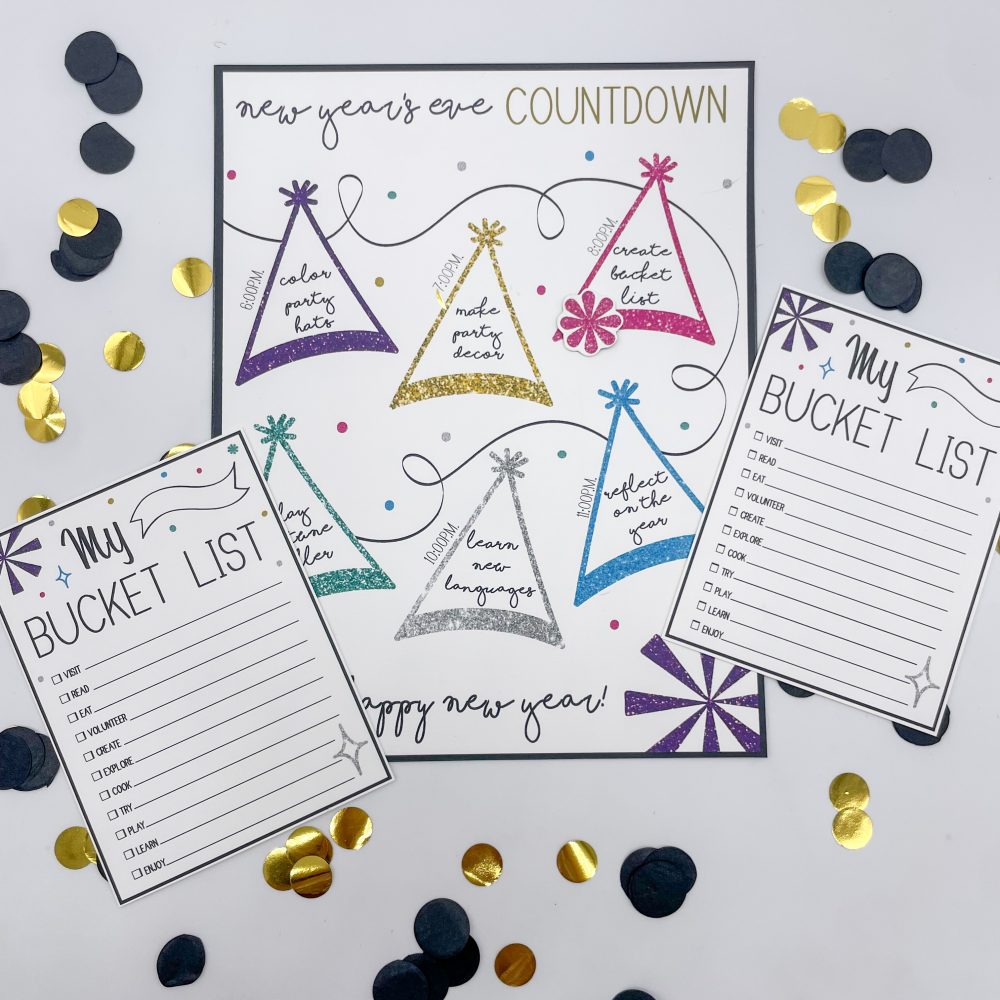 new year's eve COUNTDOWN
6:00P.M.
color
party
hats
7:00P.M.
make
party
decor
8:00P.M.
create
bucket
list
10:00P.M.
learn
new
languages
11:00P.M.
reflect
on the
year
new year!
My
BUCKET LIST
VISIT
READ
EAT
VOLUNTEER
CREATE
EXPLORE
COOK
TRY
PLAY
LEARN
ENJOY
My
BUCKET LIST
VISIT
READ
EAT
VOLUNTEER
CREATE
EXPLORE
COOK
TRY
PLAY
LEARN
ENJOY